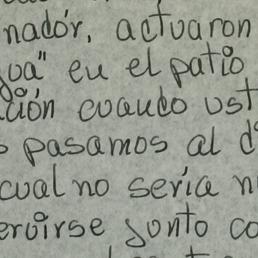 nador, actuaron
eu el patio
ción cuando ust
pasamos al d
cual no sería n
junto co